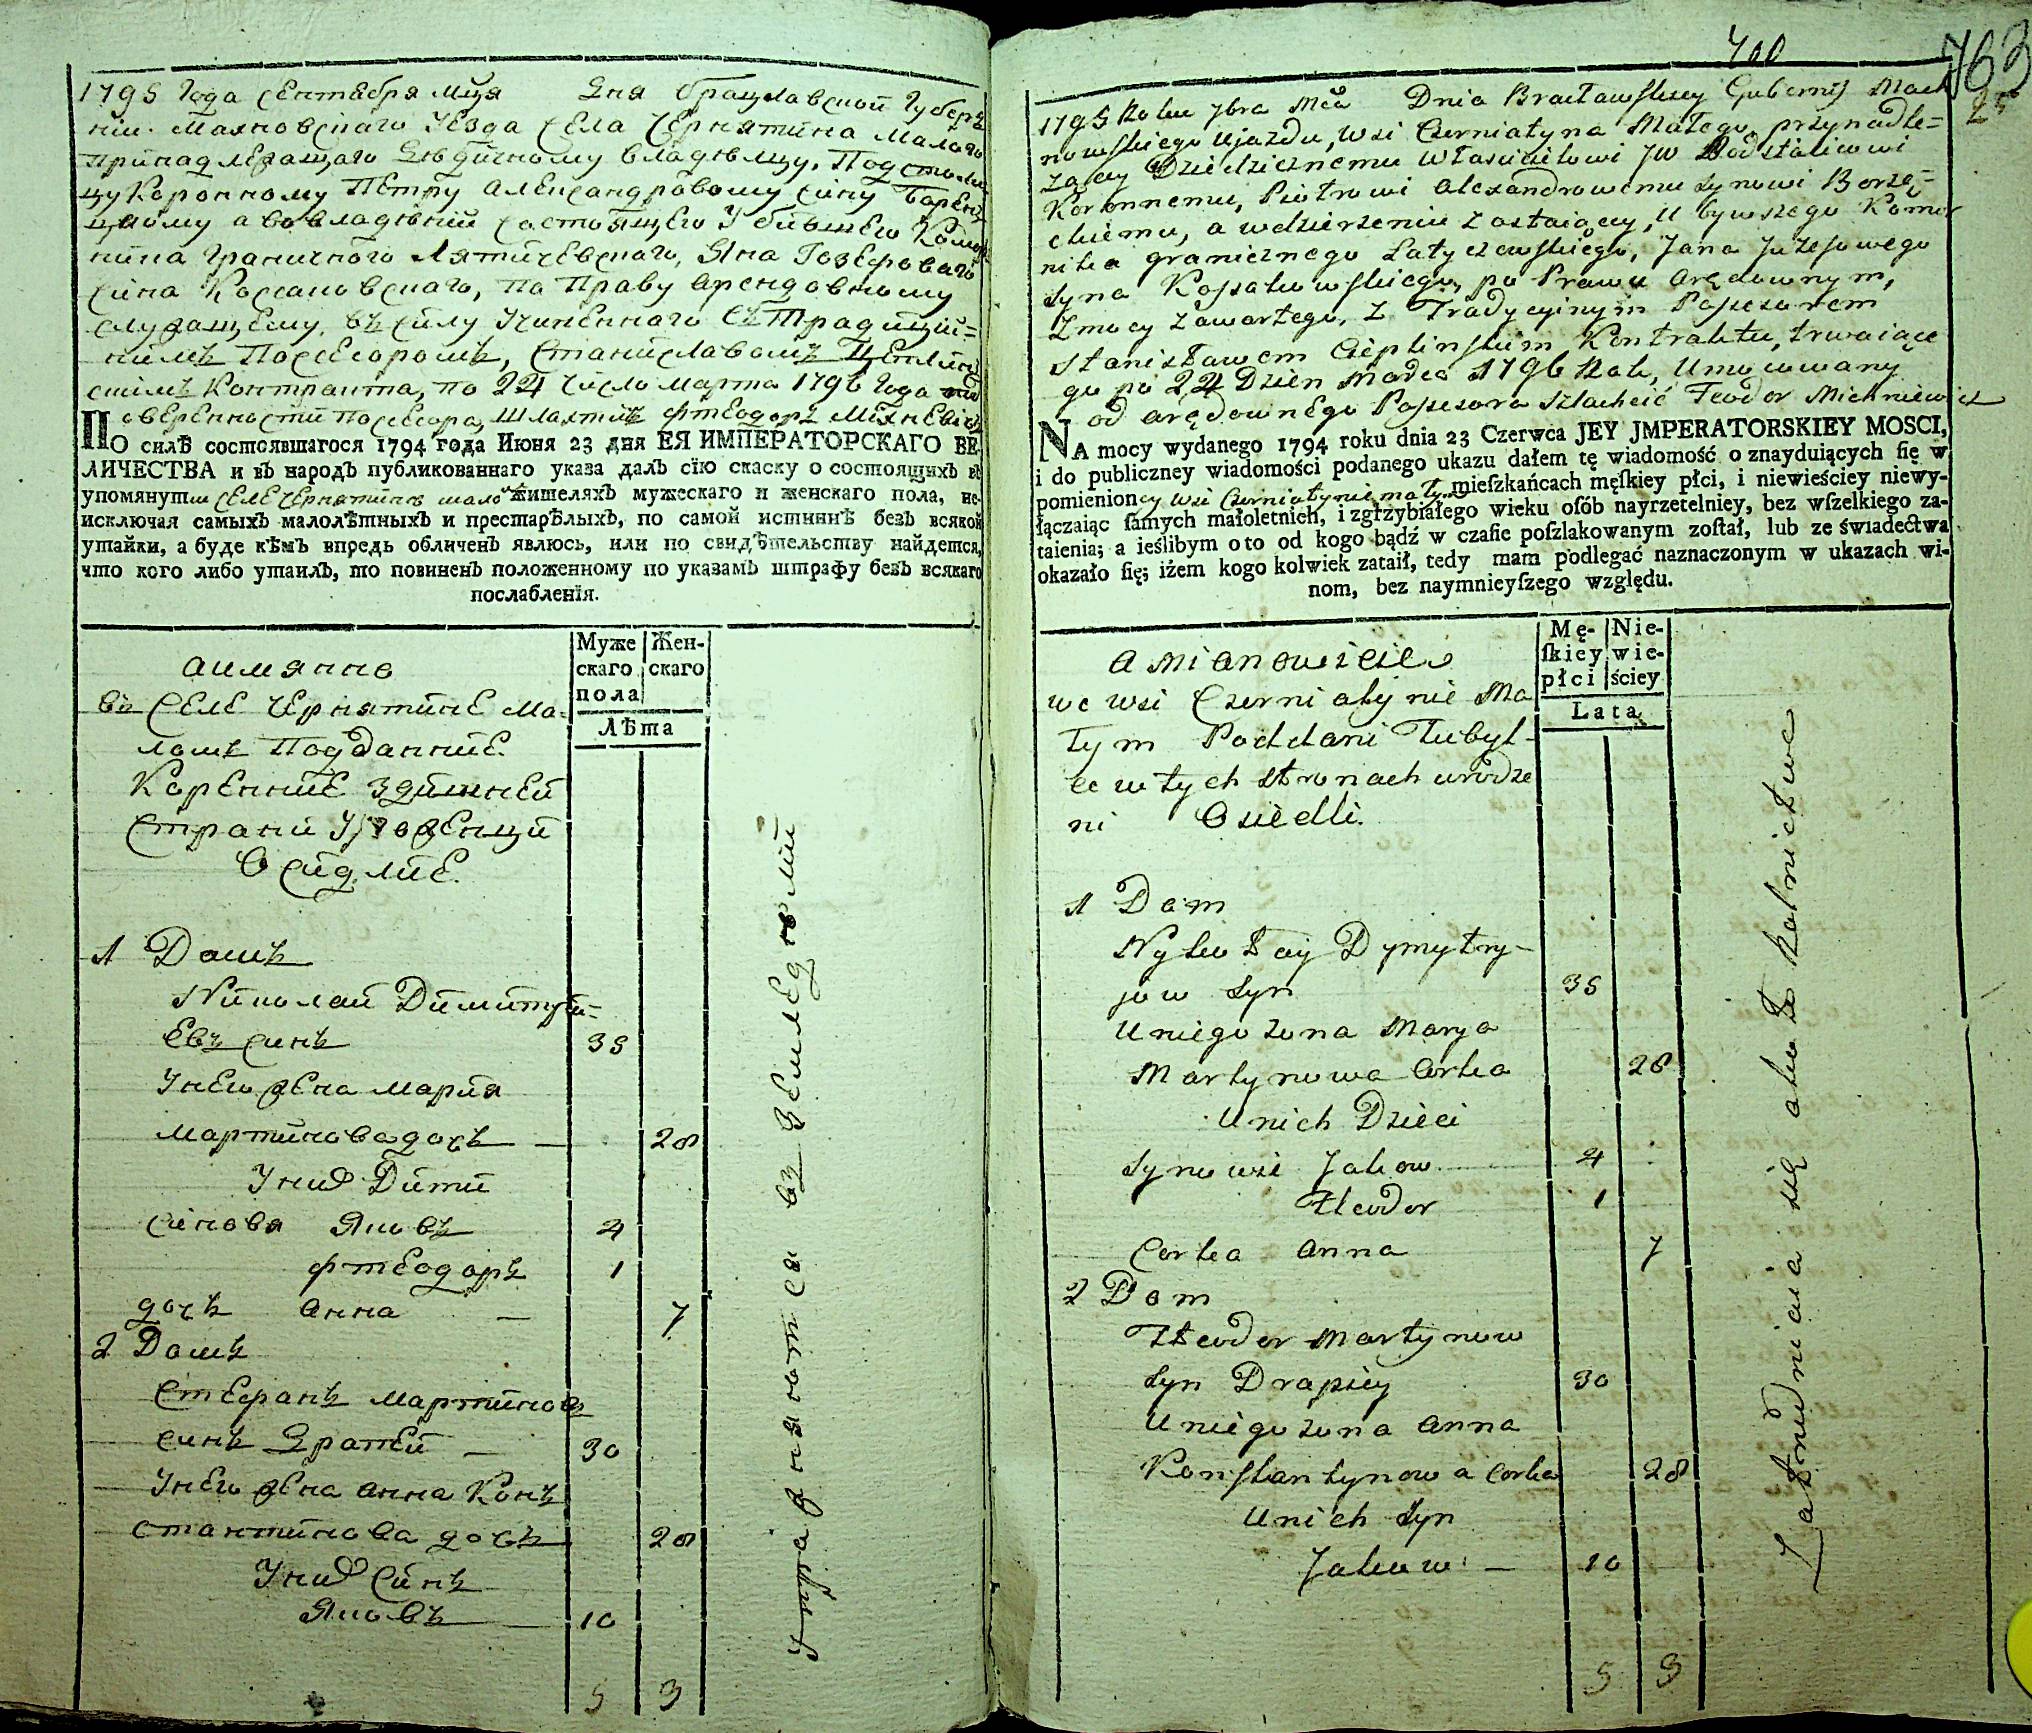 1795 Года сентебря мця Дня Брацлавской Губер
ніи Махновского Уезда Села Чернятина Малого
принадлежащаго Дѣдичному владѣлцу, Подстоли
цу Коронному Петру Александровому сину
а во владѣнии состоящего У бившего Комор
ника Граничного Лятичевскаго, Яна Іозефоваго
сина Коссаковскаго, по Праву арендовному
служащему, въ силу Учиненнаго съ Традиций=
нимъ Поссесоромъ, Станиславомъ Цеплин
скимъ Контракта, по 24 число Марта 1796 Года
оверенности Поссесора, Шляхтичъ Фтеодоръ Михневичъ
ПО силѣ состоявшагося 1794 года Июня 23 дня ЕЯ ИМПЕРАТОРСКАГО ВЕ-
ЛИЧЕСТВА и въ народъ публикованнаго указа далъ сїю скаску о состоящихъ въ
упомянутом селе Чернятинѣ мало жишеляхъ мужескаго и женскаго пола, не
исключая самыхъ малолѣтныхъ и престарѣлыхъ, по самой истиннѣ безъ всякой
утайки, а буде кѣмъ впредь обличенъ явлюсь, или по свидѣтельству найдется,
что кого либо утаилъ, то повиненъ положенному по указамъ штрафу безъ всякаго
послабленїя.
Муже
скаго
пола
Жен-
скаго
Лѣта
аимянно
въ Селе Чернятине Ма-
ломъ Подданние
Коренние здишней
Страни Уроженци
Осидлие.
1 Домъ
Николай Димитри=
евъ синъ 35
У него жена Мария
Мартинова дочь — 28
У них Дити
синовя Яковъ 4
Фтеодоръ 1
дочь Анна — 7
2 Домъ
Стефанъ Мартиновъ
синъ Драпей — 30
У него жена Анна Конъ
стантинова дочь 28
У них Синъ
Яковъ — 10
5 3
Упражняются въ земледѣлии
700
763
25
1795 Roku 7bra Mca Dnia Bracławskiey Gubernij Mach
nowskiego Ujazdu, Wsi Czerniatyna Małego, przynadle=
żącey Dziedzicznemu Właścicielowi JW Podstolicowi
Koronnemu, Piotrowi Alexandrowemu Synowi Borzę=
ckiemu, a wdzierżeniu zostaiącey, U bywszego Komor
nika granicznego Latyczewskiego, Jana Juzefowego
Syna Kossakowskiego, po Prawu Arędownym,
z mocy zawartego, z Tradycyinym Possesorem
Stanisławem Cieplinskim Kontraktu, trwaiące
go po 24 Dzien Marca 1796 Roku, Umocowany
od arędownego Possesora Szlachcic Teodor Michniewicz
NA mocy wydanego 1794 roku dnia 23 Czerwca JEY JMPERATORSKIEY MOSCI,
i do publiczney wiadomości podanego ukazu dałem tę wiadomość o znayduiących się w
pomienioney wsi Czerniatynie małym mieszkańcach męskiey płci, i niewieściey niewy-
łączaiąc samych małoletnich, i zgrzybiałego wieku osób nayrzetelniey, bez wszelkiego za-
taienia; a ieślibym oto od kogo bądź w czasie poszlakowanym został, lub ze świadectwa
okazało się; iżem kogo kolwiek zataił, tedy mam podlegać naznaczonym w ukazach wi-
nom, bez naymnieyszego względu.
Mę-
skiey
płci
Nie-
wie-
ściey
Lata
A mianowicie
we wsi Czerniatynie Ma
łym Poddani Tubyl-
ce w tych stronach urodze
ni Osiedli.
1 Dom
Nykołay Dymytry-
jow syn 35
U niego żona Marya
Martynowa Corka 28
U nich Dzieci
Synowie Jakow 4
Fteodor 1
Corka Anna 7
2 Dom
Fteodor Martynow
Syn Drapiey 30
U niego żona Anna
Konstantynowa Corka 28
U nich Syn
Jakow — 10
5 3
Zatrudniaią się około Rolnictwa